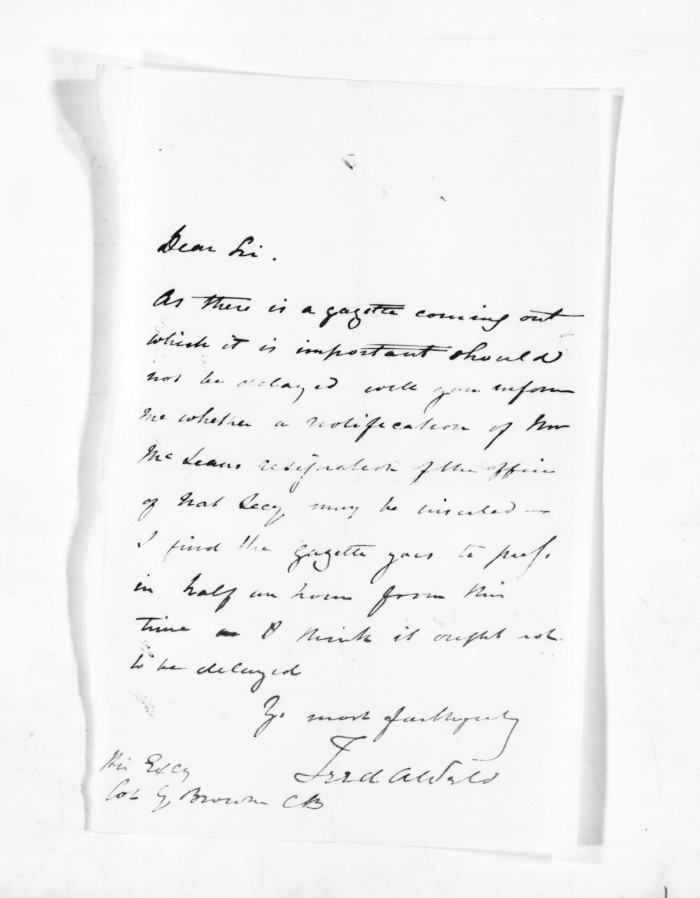 Dear Sir.
As there is a gazette coming out
which it is important should
not be delayed will you inform
me whether a notification of Mr
McLeans resignation of the office
of Nat Secy may be inserted —
I find the gazette goes to press
in half an hour from this
time & I think it ought not
to be delayed
Yr most faithfully
Fred A Weld
His Excy
Col G Browne CB